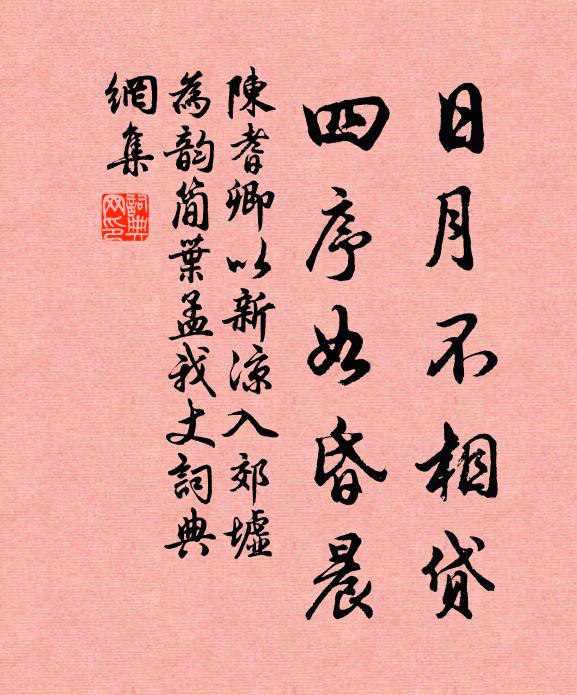 日月不相貸
四序如昏晨
陳耆卿以新涼入郊墟
為韵简葉孟我丈詞典
網集
詞典
网印